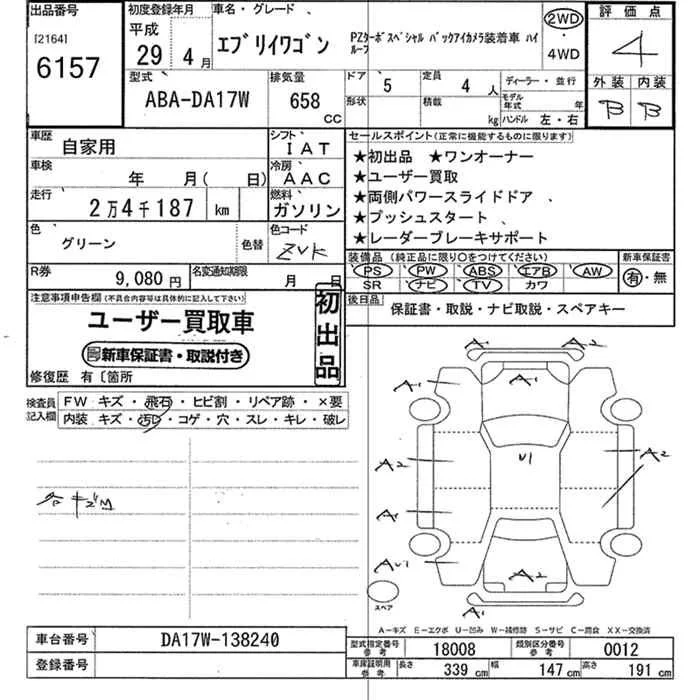 出品番号
[2164]
6157
初度登録年月
平成
29年 4月
車名・グレード、
エブリイワゴン
PZターボスペシャル バックアイカメラ装着車 ハイルーフ
2WD・4WD
評価点
4
外装 内装
B B
型式
ABA-DA17W
排気量
658 CC
ドア 5
定員 4人
ディーラー・並行
形状
積載 kg
モデル年式 年
ハンドル 左・右
車歴 自家用
シフト IAT
車検 年 月( 日)
冷房 AAC
走行 2万4千187 km
燃料 ガソリン
色 グリーン
色替
色コード ZVK
R券 9,080円
名変通知期限 月 日
セールスポイント(正常に機能するものに限ります)
★初出品 ★ワンオーナー
★ユーザー買取
★両側パワースライドドア 、
★プッシュスタート
★レーダーブレーキサポート
装備品(純正品に限り○をつけてください)
PS PW ABS エアB AW
SR ナビ TV カワ
新車保証書
有・無
後日品 保証書・取説・ナビ取説・スペアキー
注意事項申告欄(不具合内容等は具体的に記入して下さい)
ユーザー買取車
新車保証書・取説付き
初出品
修復歴 有〔箇所
検査員記入欄
FW キズ・飛石・ヒビ割・リペア跡・×要
内装 キズ・汚レ・コゲ・穴・スレ・キレ・破レ
各キズM
A1 A2
A1 A1
U1
A2 A2
A1
AU1 A2
A1
スペア
A-キズ E-エクボ U-凹み W-補修跡 S-サビ C-腐食 XX-交換済
車台番号 DA17W-138240
登録番号
型式指定番号参考 18008
類別区分番号参考 0012
車庫証明用参考 長さ 339cm 幅 147cm 高さ 191cm